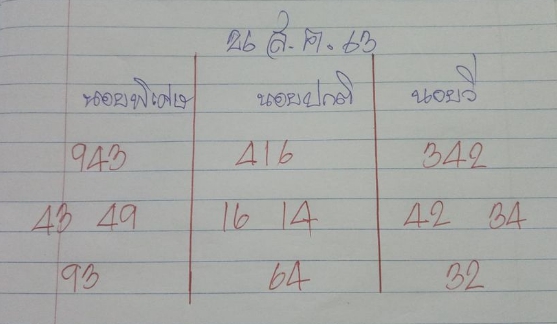 26 ส.ค. 63
นอยพิเศษ นอยปกติ นอยวี
943 416 342
43 49 16 14 42 34
93 64 32